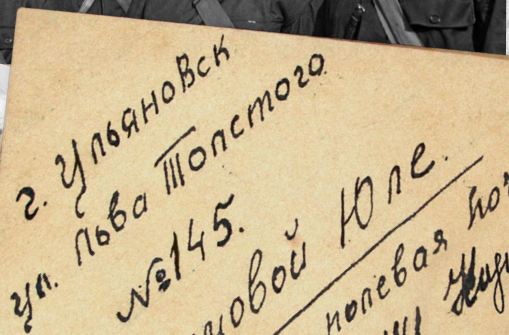 г. Ульяновск
ул. Льва Толстого
№145.
Юле.
полевая